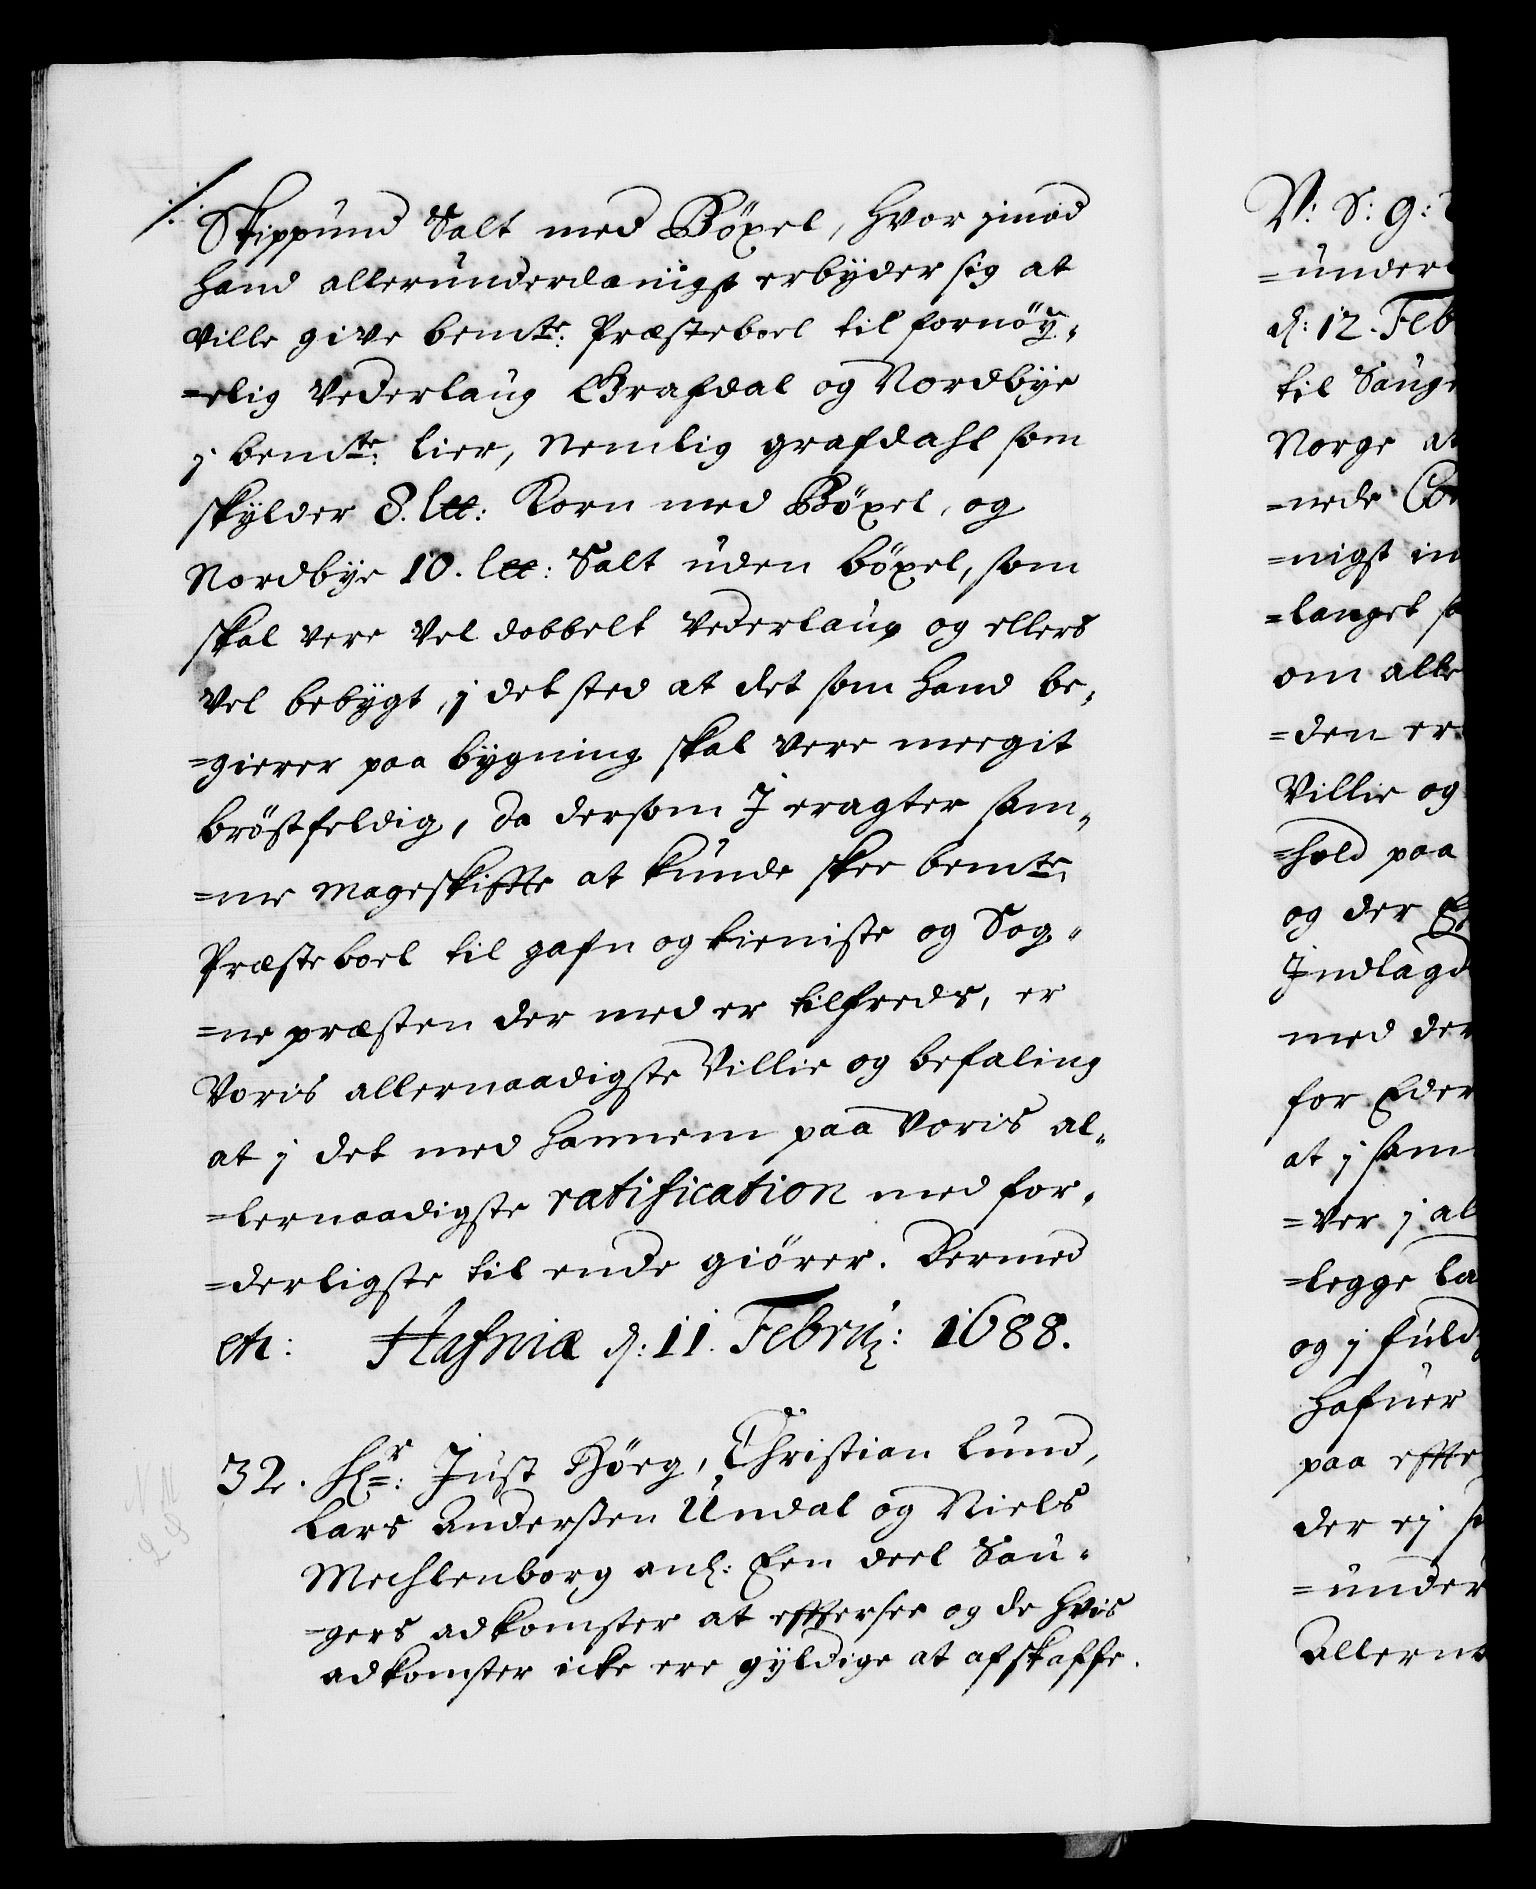 Skippund Salt med Böxel, hvor imod
hand allerunderdanigst erbyder sig at
ville give bemte: Præsteboel til fornöy-
=elig Vederlaug Grafdal og Nordbÿe
j bemte: lier, Nemlig grafdahl som
skylder 8. Korn med Böxel, og
Nordbÿe 10. Salt uden böxel, som
skal vere Vel dobbelt Vederlaug og ellers
vel bebygt, j det sted at det som hand be-
=gierer paa bygning skal vere meegit
bröstfeldig, da dersom J eragter sam-
=me Mageskiffte at kunde skee bemte:
Præsteboel til gafn og tieniste og Sog-
=nepræsten der med er tilfreds, er
Voris allernaadigste Villie og befaling
at j det med hannem paa Voris al-
=lernaadigste ratification med for-
=derligste til ende giörer. Dermed
etc: Hafniæ d: 11. Febru: 1688.
32. Hr: Just Höeg, Christian Lund,
Lars Andersen Undal og Niels
Mechlenborg anl: Een deel Sau-
=gers adkomster at efftersee og de hvis
adkomster icke ere gyldige at afskaffe.
V: S: G:
=under
d: 12. Feb
til Sauge
Norge at
=nede
=nigst in
=langet
om alle
=den er
Villie og
=hold paa
og der
Indlagd
med der
for Eder
at j sam
=ver j al
=legge la
og j fuld
hafuer
paa effte
der ej
=under
Allerna